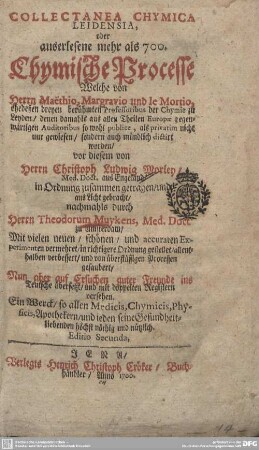 COLLECTANEA CHYMICA
LEIDENSIA,
oder
auserlesene mehr als 700.
Chymische Processe
Welche von
Herrn Maëthio, Margravio und le Mortio,
ehedessen dreyen berühmten Professoribus der Chymie zu
Leyden/ denen damahls aus allen Theilen Europæ gegen-
wärtigen Auditoribus so wohl publice, als privatim nicht
nur gewiesen/ sondern auch mündlich dictirt
worden/
vor diesem von
Herrn Christoph Ludwig Morley/
Med. Doct. aus Engelland
in Ordnung zusammen getragen/ und
ans Licht gebracht/
nachmahls durch
Herrn Theodorum Muykens, Med. Doct.
zu Amsterdam/
Mit vielen neuen/ schönen/ und accuraten Ex-
perimenten vermehret/ in richtigere Ordnung gestellet/ allent-
halben verbessert/ und von überflüßigen Processen
gesaubert/
Nun aber auf Ersuchen guter Freunde ins
Teutsche übersetzt/ und mit doppelten Registern
versehen.
Ein Werck/ so allen Medicis, Chymicis, Phy-
sicis, Apothekern/ und jeden seine Gesundheit
liebenden höchst nöthig und nützlich.
Editio Secunda,
JENA/
Verlegts Henrich Christoph Cröker/ Buch-
händler/ Anno 1700.
DFG